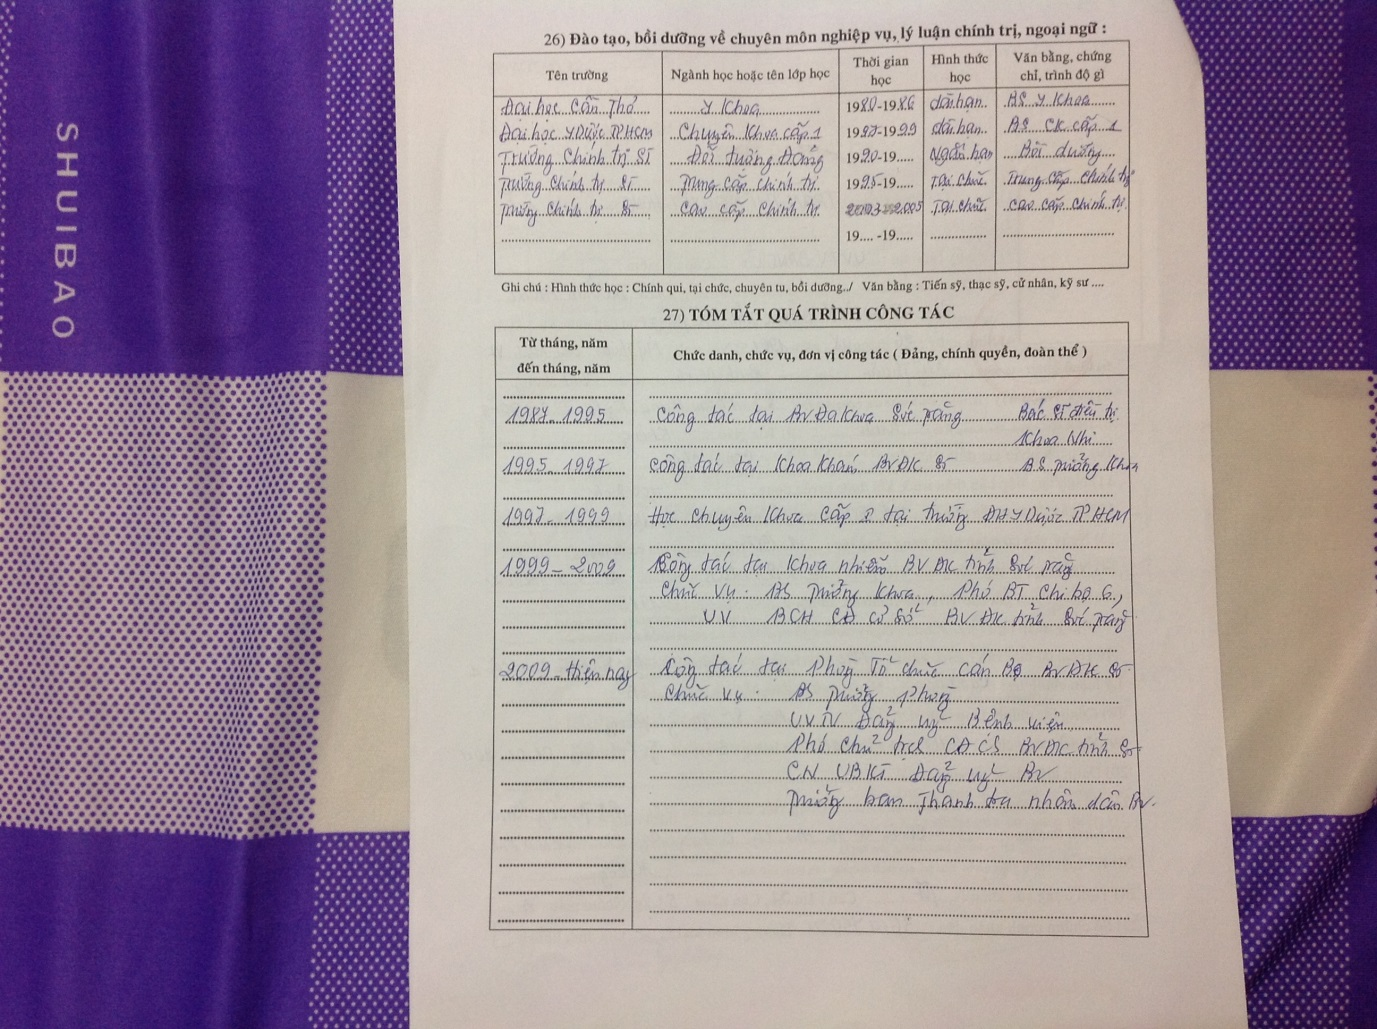 SHUIBAO
26) Đào tạo, bồi dưỡng về chuyên môn nghiệp vụ, lý luận chính trị, ngoại ngữ :
Tên trường Ngành học hoặc tên lớp học Thời gian học Hình thức học Văn bằng, chứng chỉ, trình độ gì
Đại học Cần Thơ Y Khoa 1980-1986 dài hạn BS Y Khoa
Đại học Y Dược TPHCM Chuyên Khoa cấp 1 1997-1999 dài hạn BS CK cấp 1
Trường Chính trị ST Đối tượng Đảng 1990-19..... Ngắn hạn Bồi dưỡng
Trường Chính trị ST Trung cấp Chính trị 1995-19..... Tại chức Trung cấp Chính trị
Trường Chính trị ST Cao cấp Chính trị 2003-2005 Tại chức Cao cấp Chính trị
19.... -19.....
Ghi chú : Hình thức học : Chính qui, tại chức, chuyên tu, bồi dưỡng../ Văn bằng : Tiến sỹ, thạc sỹ, cử nhân, kỹ sư ....
27) TÓM TẮT QUÁ TRÌNH CÔNG TÁC
Từ tháng, năm đến tháng, năm Chức danh, chức vụ, đơn vị công tác ( Đảng, chính quyền, đoàn thể )
1987-1995 Công tác tại BV Đa Khoa Sóc Trăng Bác sĩ điều trị
Khoa Nhi
1995-1997 Công tác tại Khoa Khám BVĐK ST BS Trưởng Khoa
1997-1999 Học Chuyên Khoa Cấp tại trường ĐH Y Dược TPHCM
1999-2009 Công tác tại Khoa nhiễm BVĐK tỉnh Sóc Trăng
Chức vụ: BS Trưởng Khoa, Phó BT Chi bộ 6,
UV BCH CĐ cơ sở BVĐK tỉnh Sóc Trăng
2009-Hiện nay Công tác tại Phòng Tổ chức Cán Bộ BVĐK ST
Chức vụ: BS Trưởng Phòng
UVTV Đảng uỷ Bệnh viện
Phó Chủ tịch CĐCS BVĐK tỉnh ST
CN UBKT Đảng uỷ BV
Trưởng ban Thanh tra nhân dân BV.